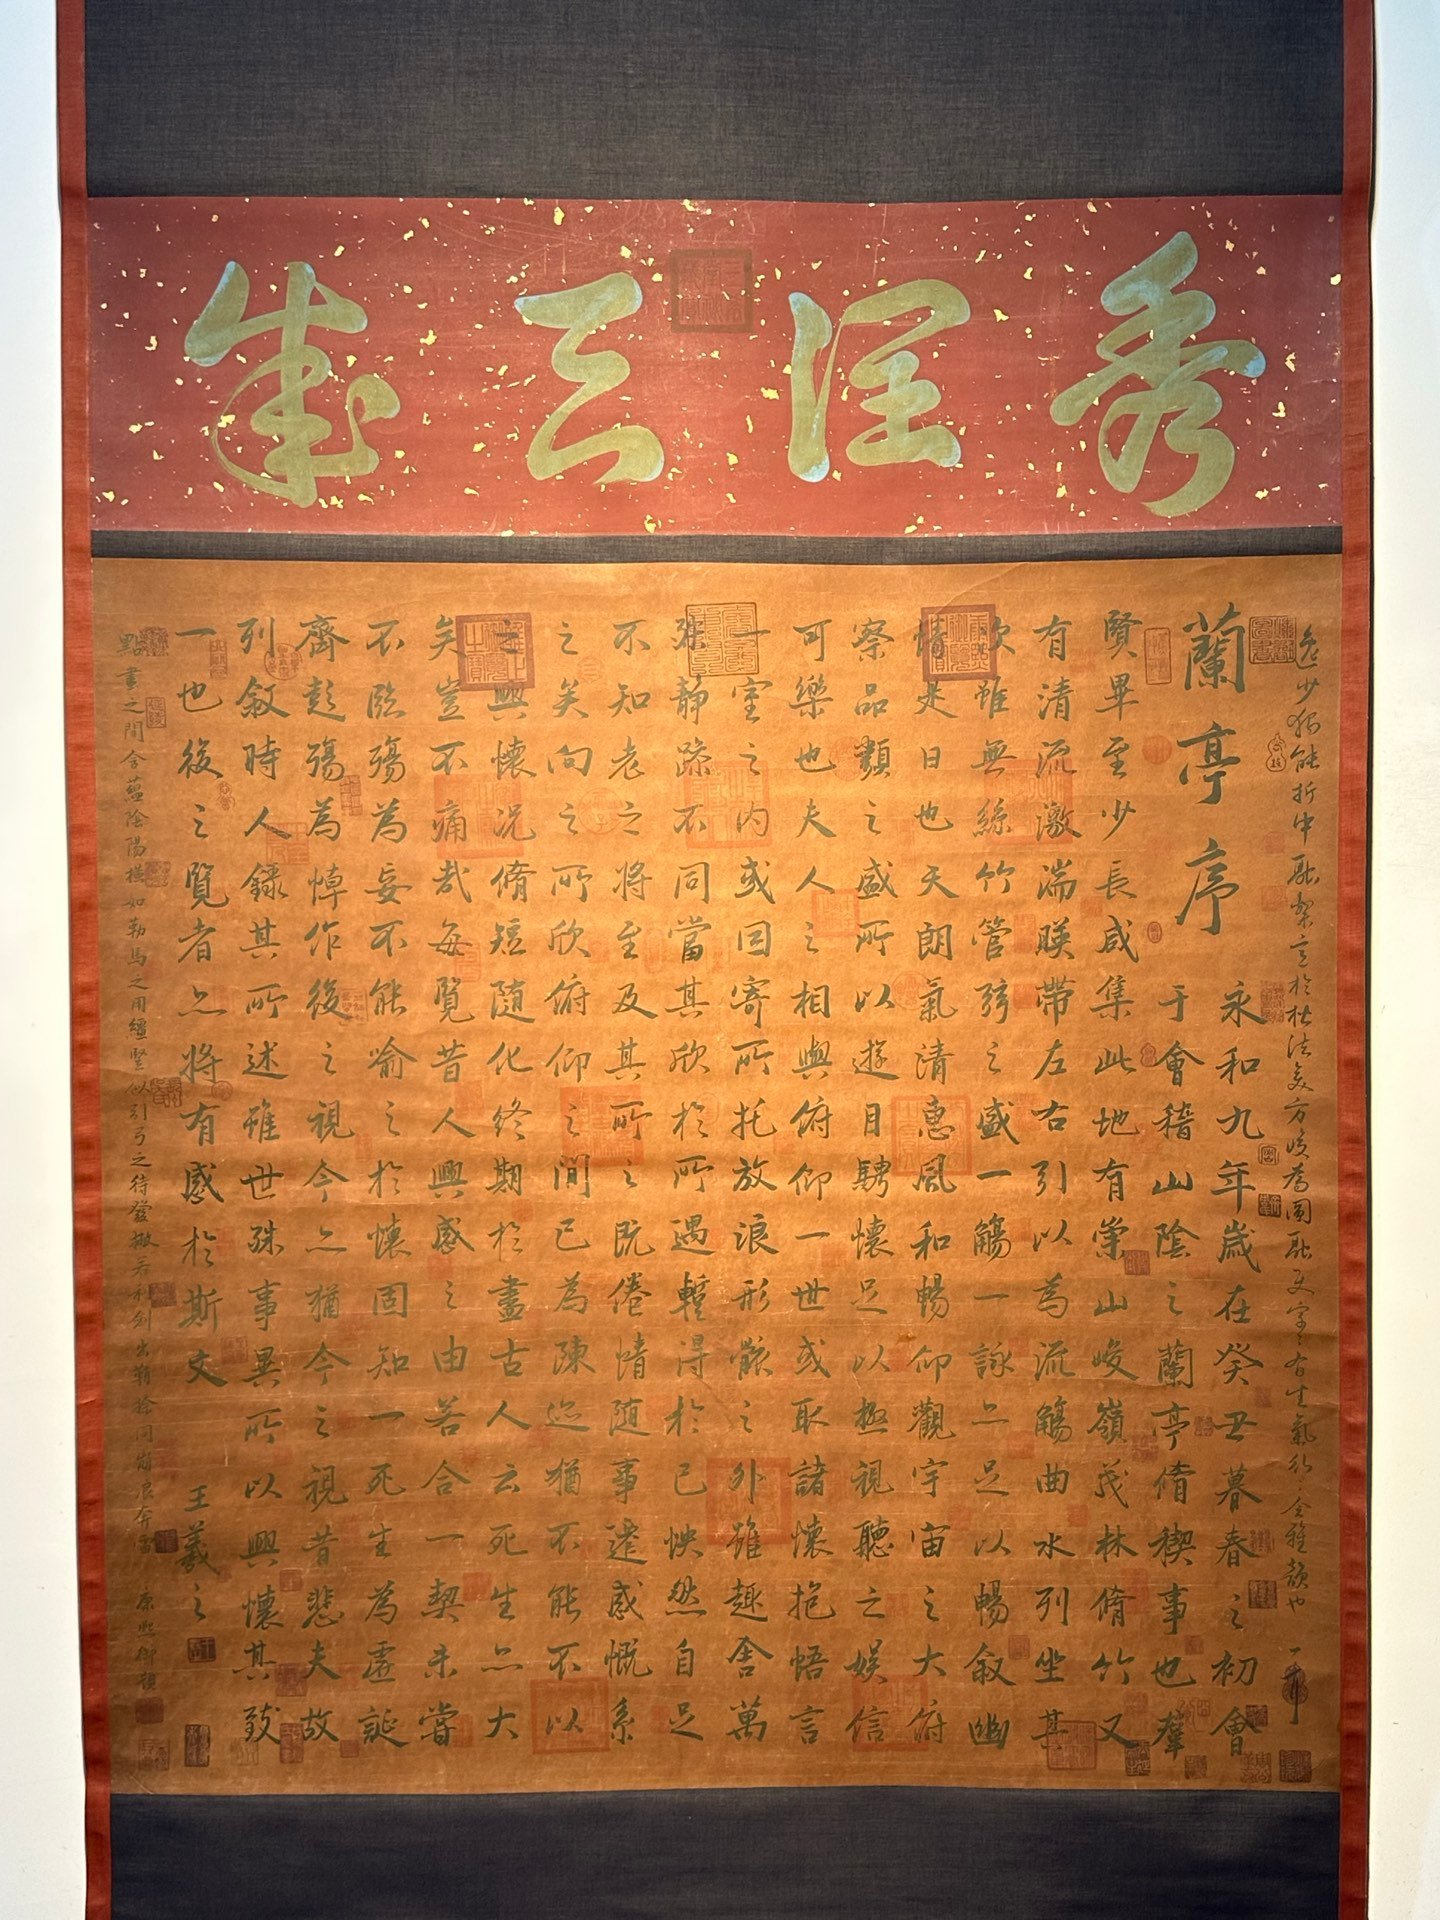 秀潤天成
逸少獨能折中融於楷法爰方峻為圓融更字字有生氣行行含雅韻也
蘭亭序
永和九年歲在癸丑暮春之初會
于會稽山陰之蘭亭脩稧事也羣
賢畢至少長咸集此地有崇山峻嶺茂林脩竹又
有清流激湍暎帶左右引以為流觴曲水列坐其
次雖無絲竹管弦之盛一觴一詠亦足以暢叙幽
情是日也天朗氣清惠風和暢仰觀宇宙之大俯
察品類之盛所以遊目騁懷足以極視聽之娛信
可樂也夫人之相與俯仰一世或取諸懷抱悟言
一室之內或因寄所托放浪形骸之外雖趣舍萬
殊靜躁不同當其欣於所遇蹔得於己怏然自足
不知老之將至及其所之既倦情隨事遷感慨系
之矣向之所欣俯仰之間已為陳迹猶不能不以
之興懷況脩短隨化終期於盡古人云死生亦大
矣豈不痛哉每覽昔人興感之由若合一契未嘗
不臨殤為妄不能喻之於懷固知一死生為虛誕
齊彭殤為悼作後之視今亦猶今之視昔悲夫故
列敘時人錄其所述雖世殊事異所以興懷其致
一也後之覽者亦將有感於斯文 王羲之
點畫之間含蘊陰陽橫如勒馬之用繮豎似引弓之待發撇若利劍出鞘捺同崩浪奔雷 康熙御題